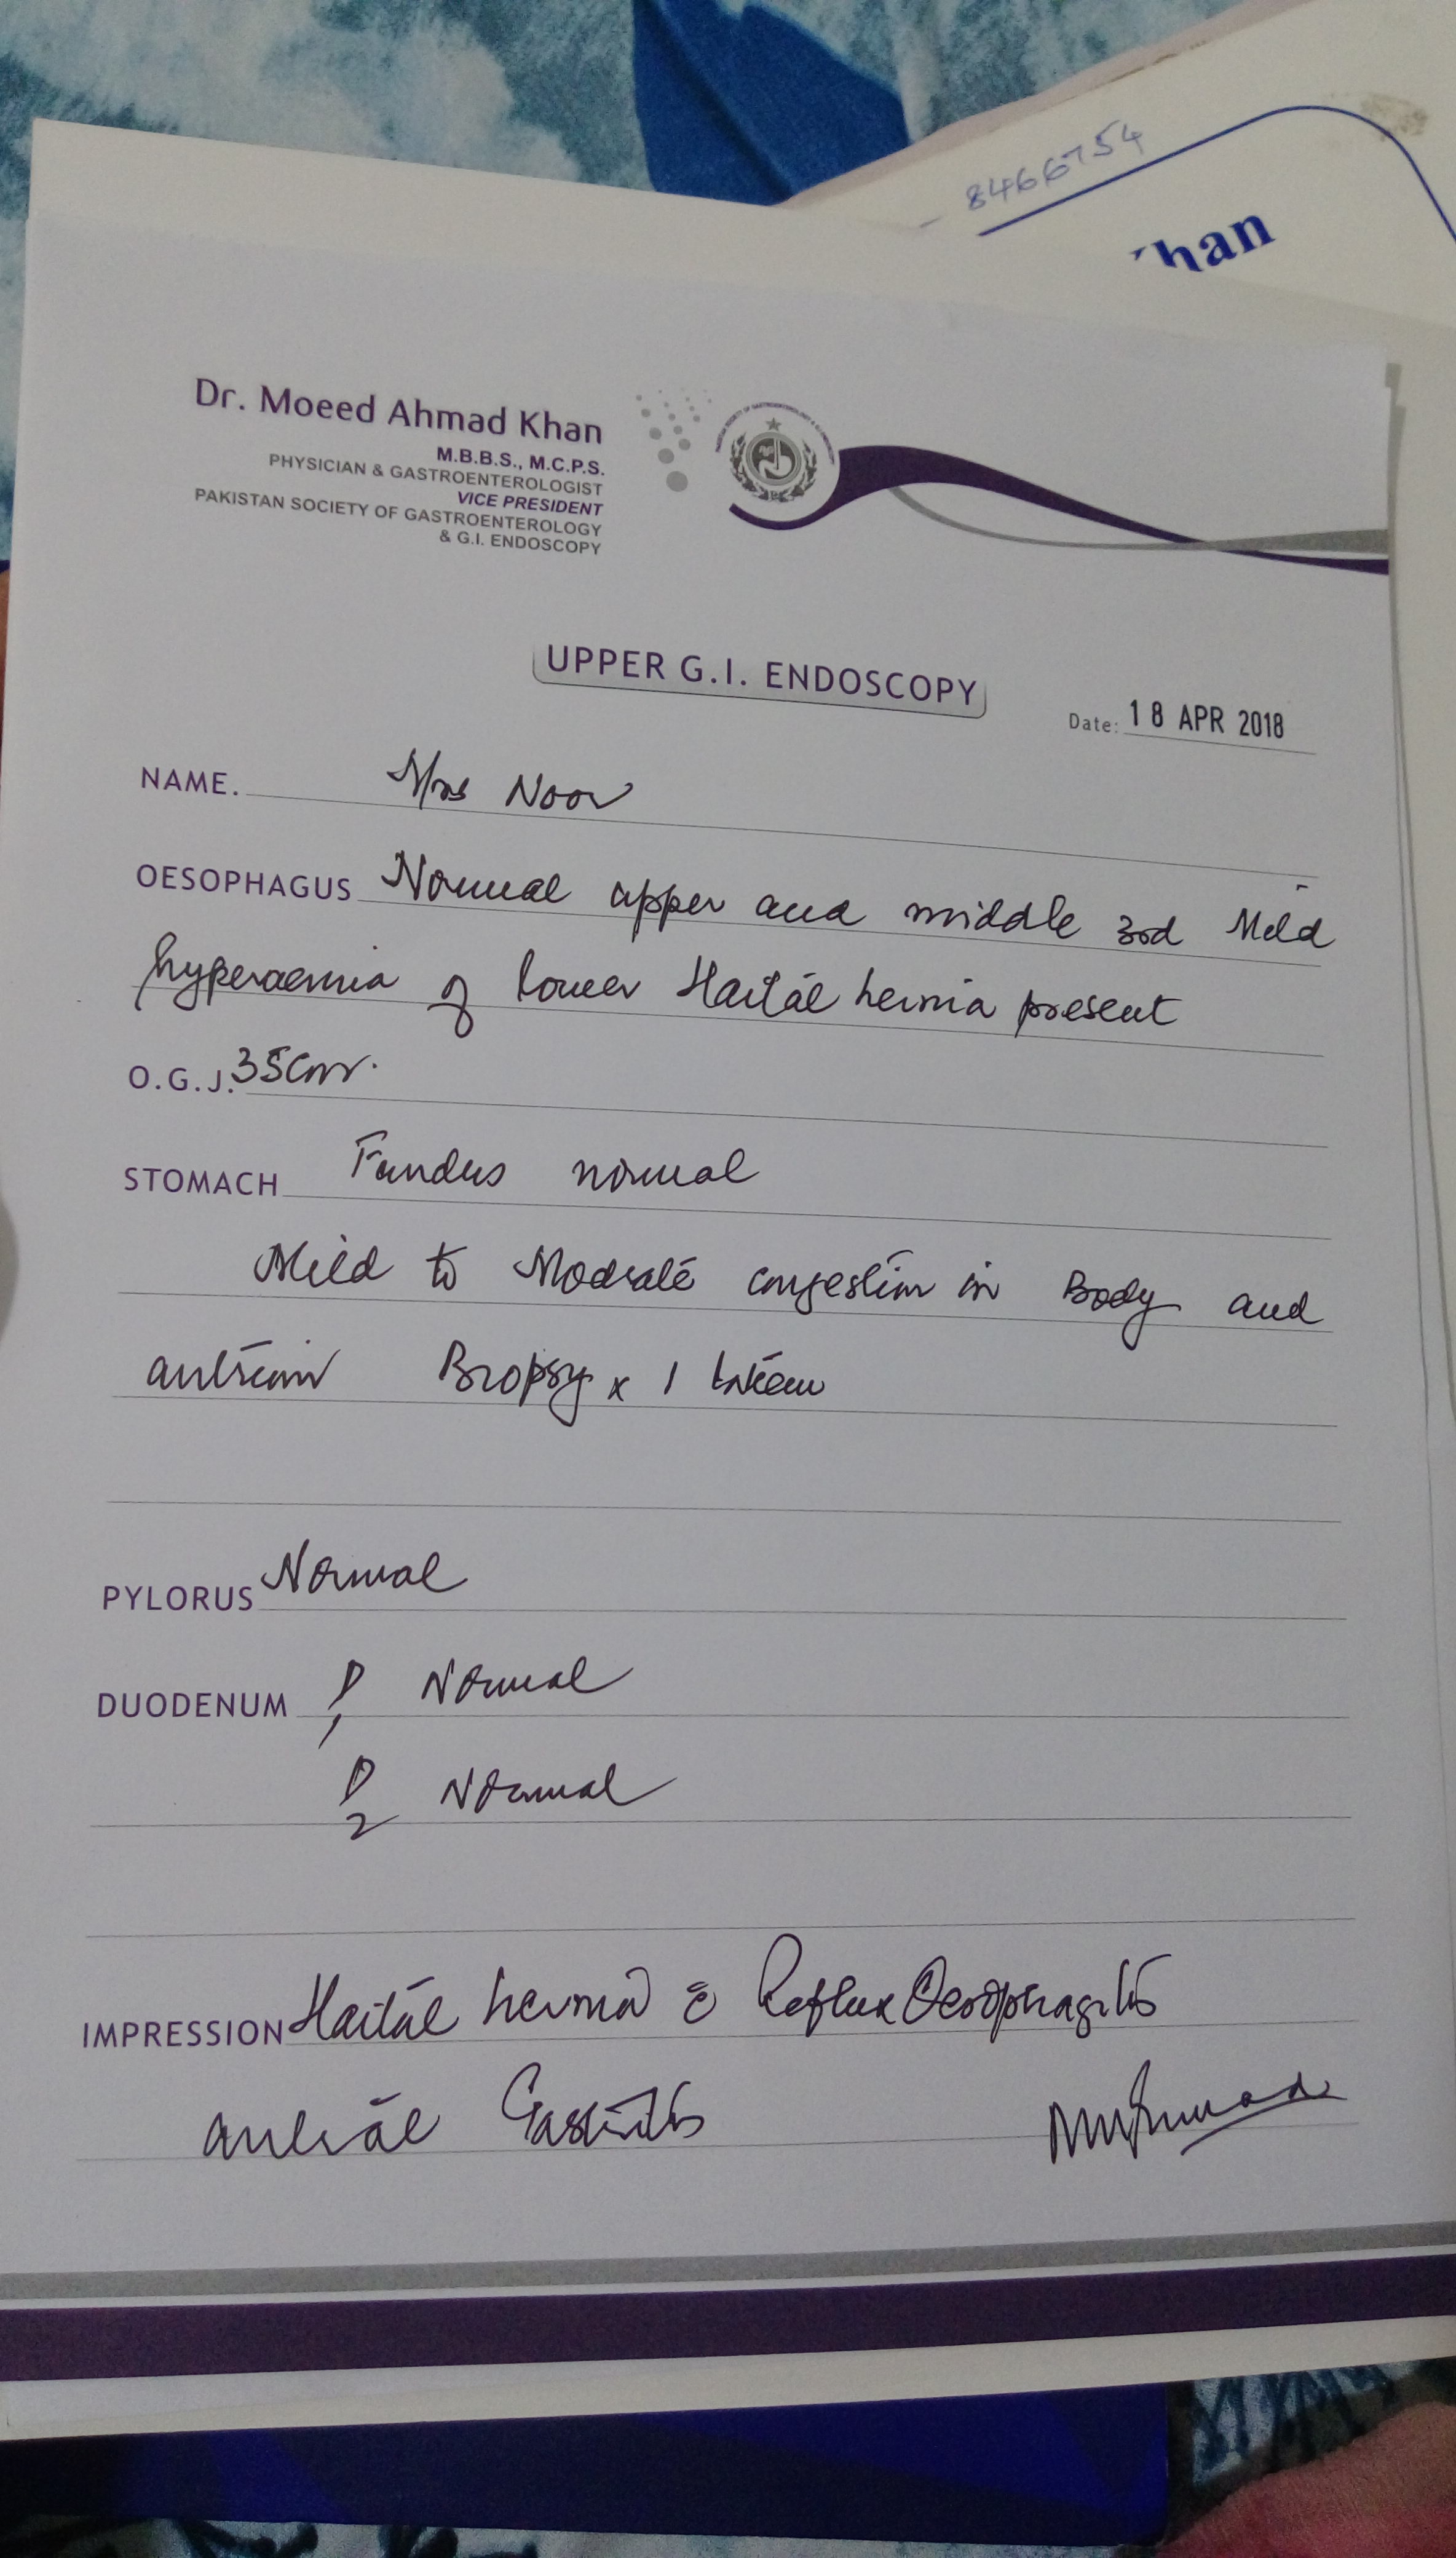 8466754
Khan
Dr. Moeed Ahmad Khan
M.B.B.S., M.C.P.S.
PHYSICIAN & GASTROENTEROLOGIST
VICE PRESIDENT
PAKISTAN SOCIETY OF GASTROENTEROLOGY
& G.I. ENDOSCOPY
UPPER G.I. ENDOSCOPY
Date: 18 APR 2018
NAME. Mrs Noor
OESOPHAGUS Normal upper and middle 3rd Mild
hyperaemia of lower Haital hernia present
O.G.J. 35cm.
STOMACH Fundus normal
Mild to Modrate congestion in Body and
antrum Biopsy x 1 taken
PYLORUS Normal
DUODENUM D1 Normal
D2 Normal
IMPRESSION Haital hernia c̄ Reflux Oesophagitis
antral Gastritis